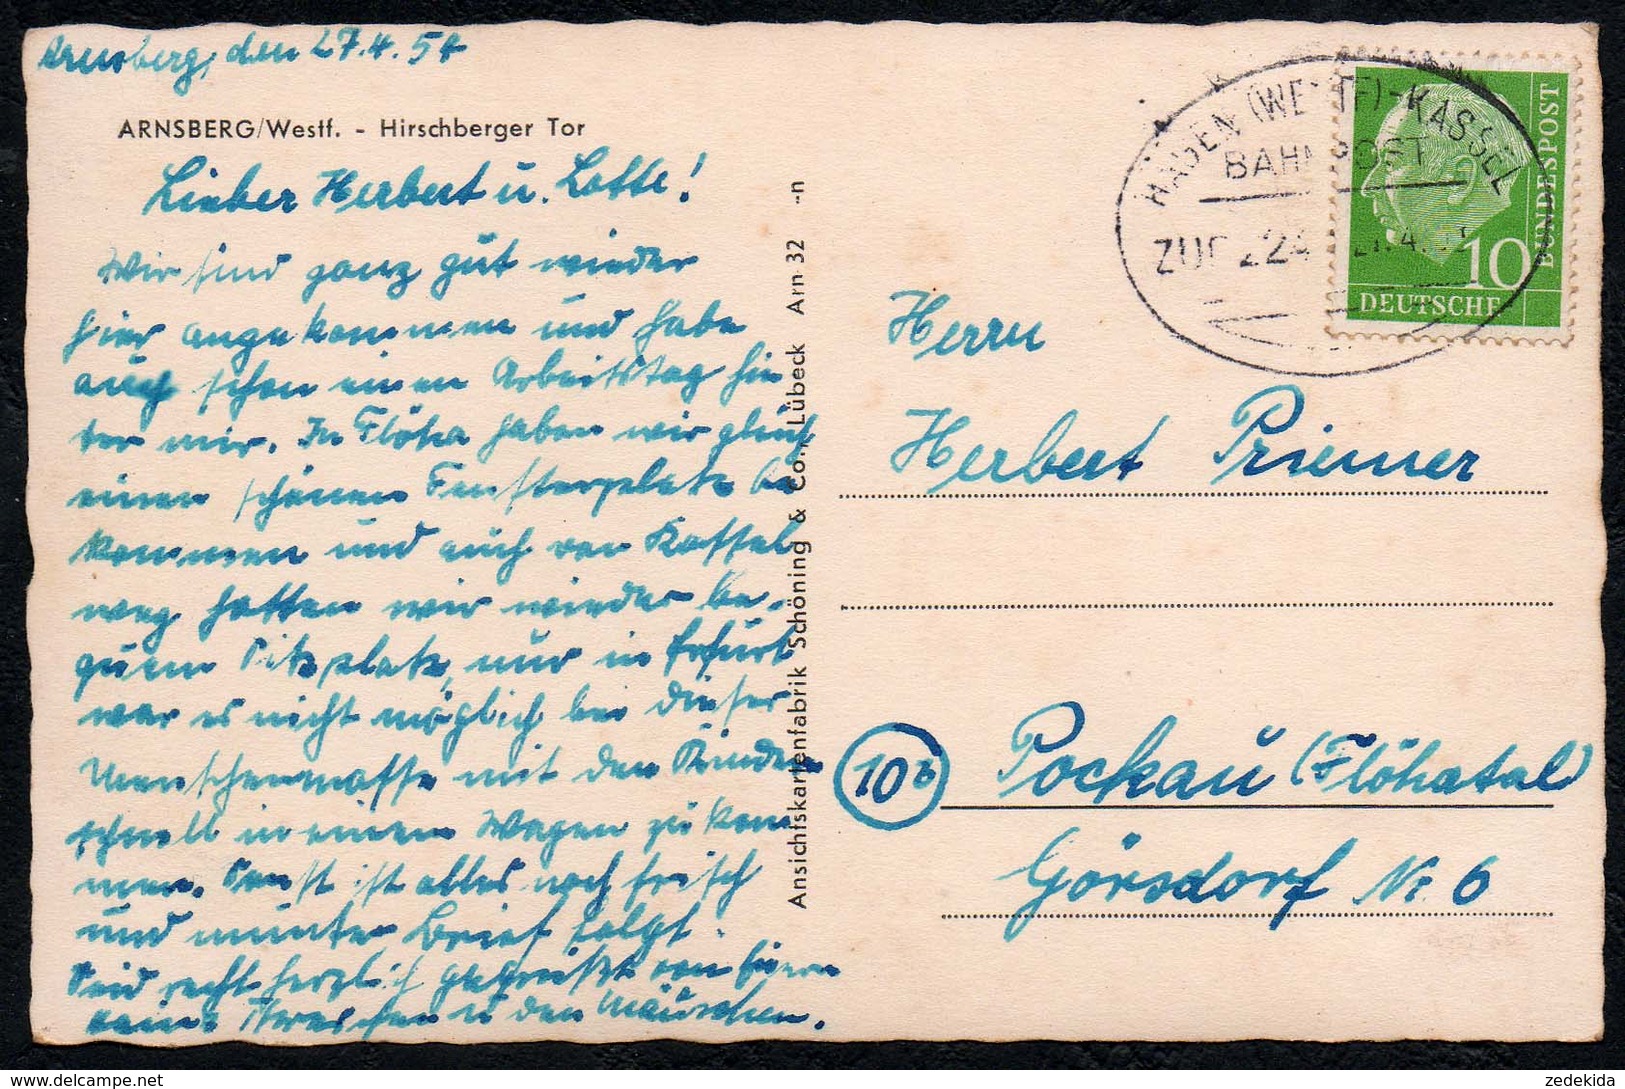 Arnsberg, den 27.4.54
ARNSBERG/Westf. - Hirschberger Tor
Lieber Herbert u. Lotte!
Wir sind ganz gut wieder
hier angekommen und habe
auch schon einen Arbeitstag hin
ter mir. In Flöha haben wir gleich
einen schönen Fensterplatz be
kommen und auch von Kassel
weg hatten wir wieder be-
quem Sitzplatz, nur in Erfurt
war es nicht möglich bei dieser
Menschenmasse mit den Kindern
schnell in einen Wagen zu kom
men. Sonst ist alles noch frisch
und munter Brief folgt.
Seid recht herzlich gegrüßt von
u den Mäuschen.
Ansichtskartenfabrik Schöning & Co., Lübeck Arn 32 -n
HAGEN (WESTF)-KASSEL
BAHNPOST
ZUG 224
BUNDESPOST
10
DEUTSCHE
Herrn
Herbert Priemer
10b
Pockau (Flöhatal)
Görsdorf Nr. 6
zedekida